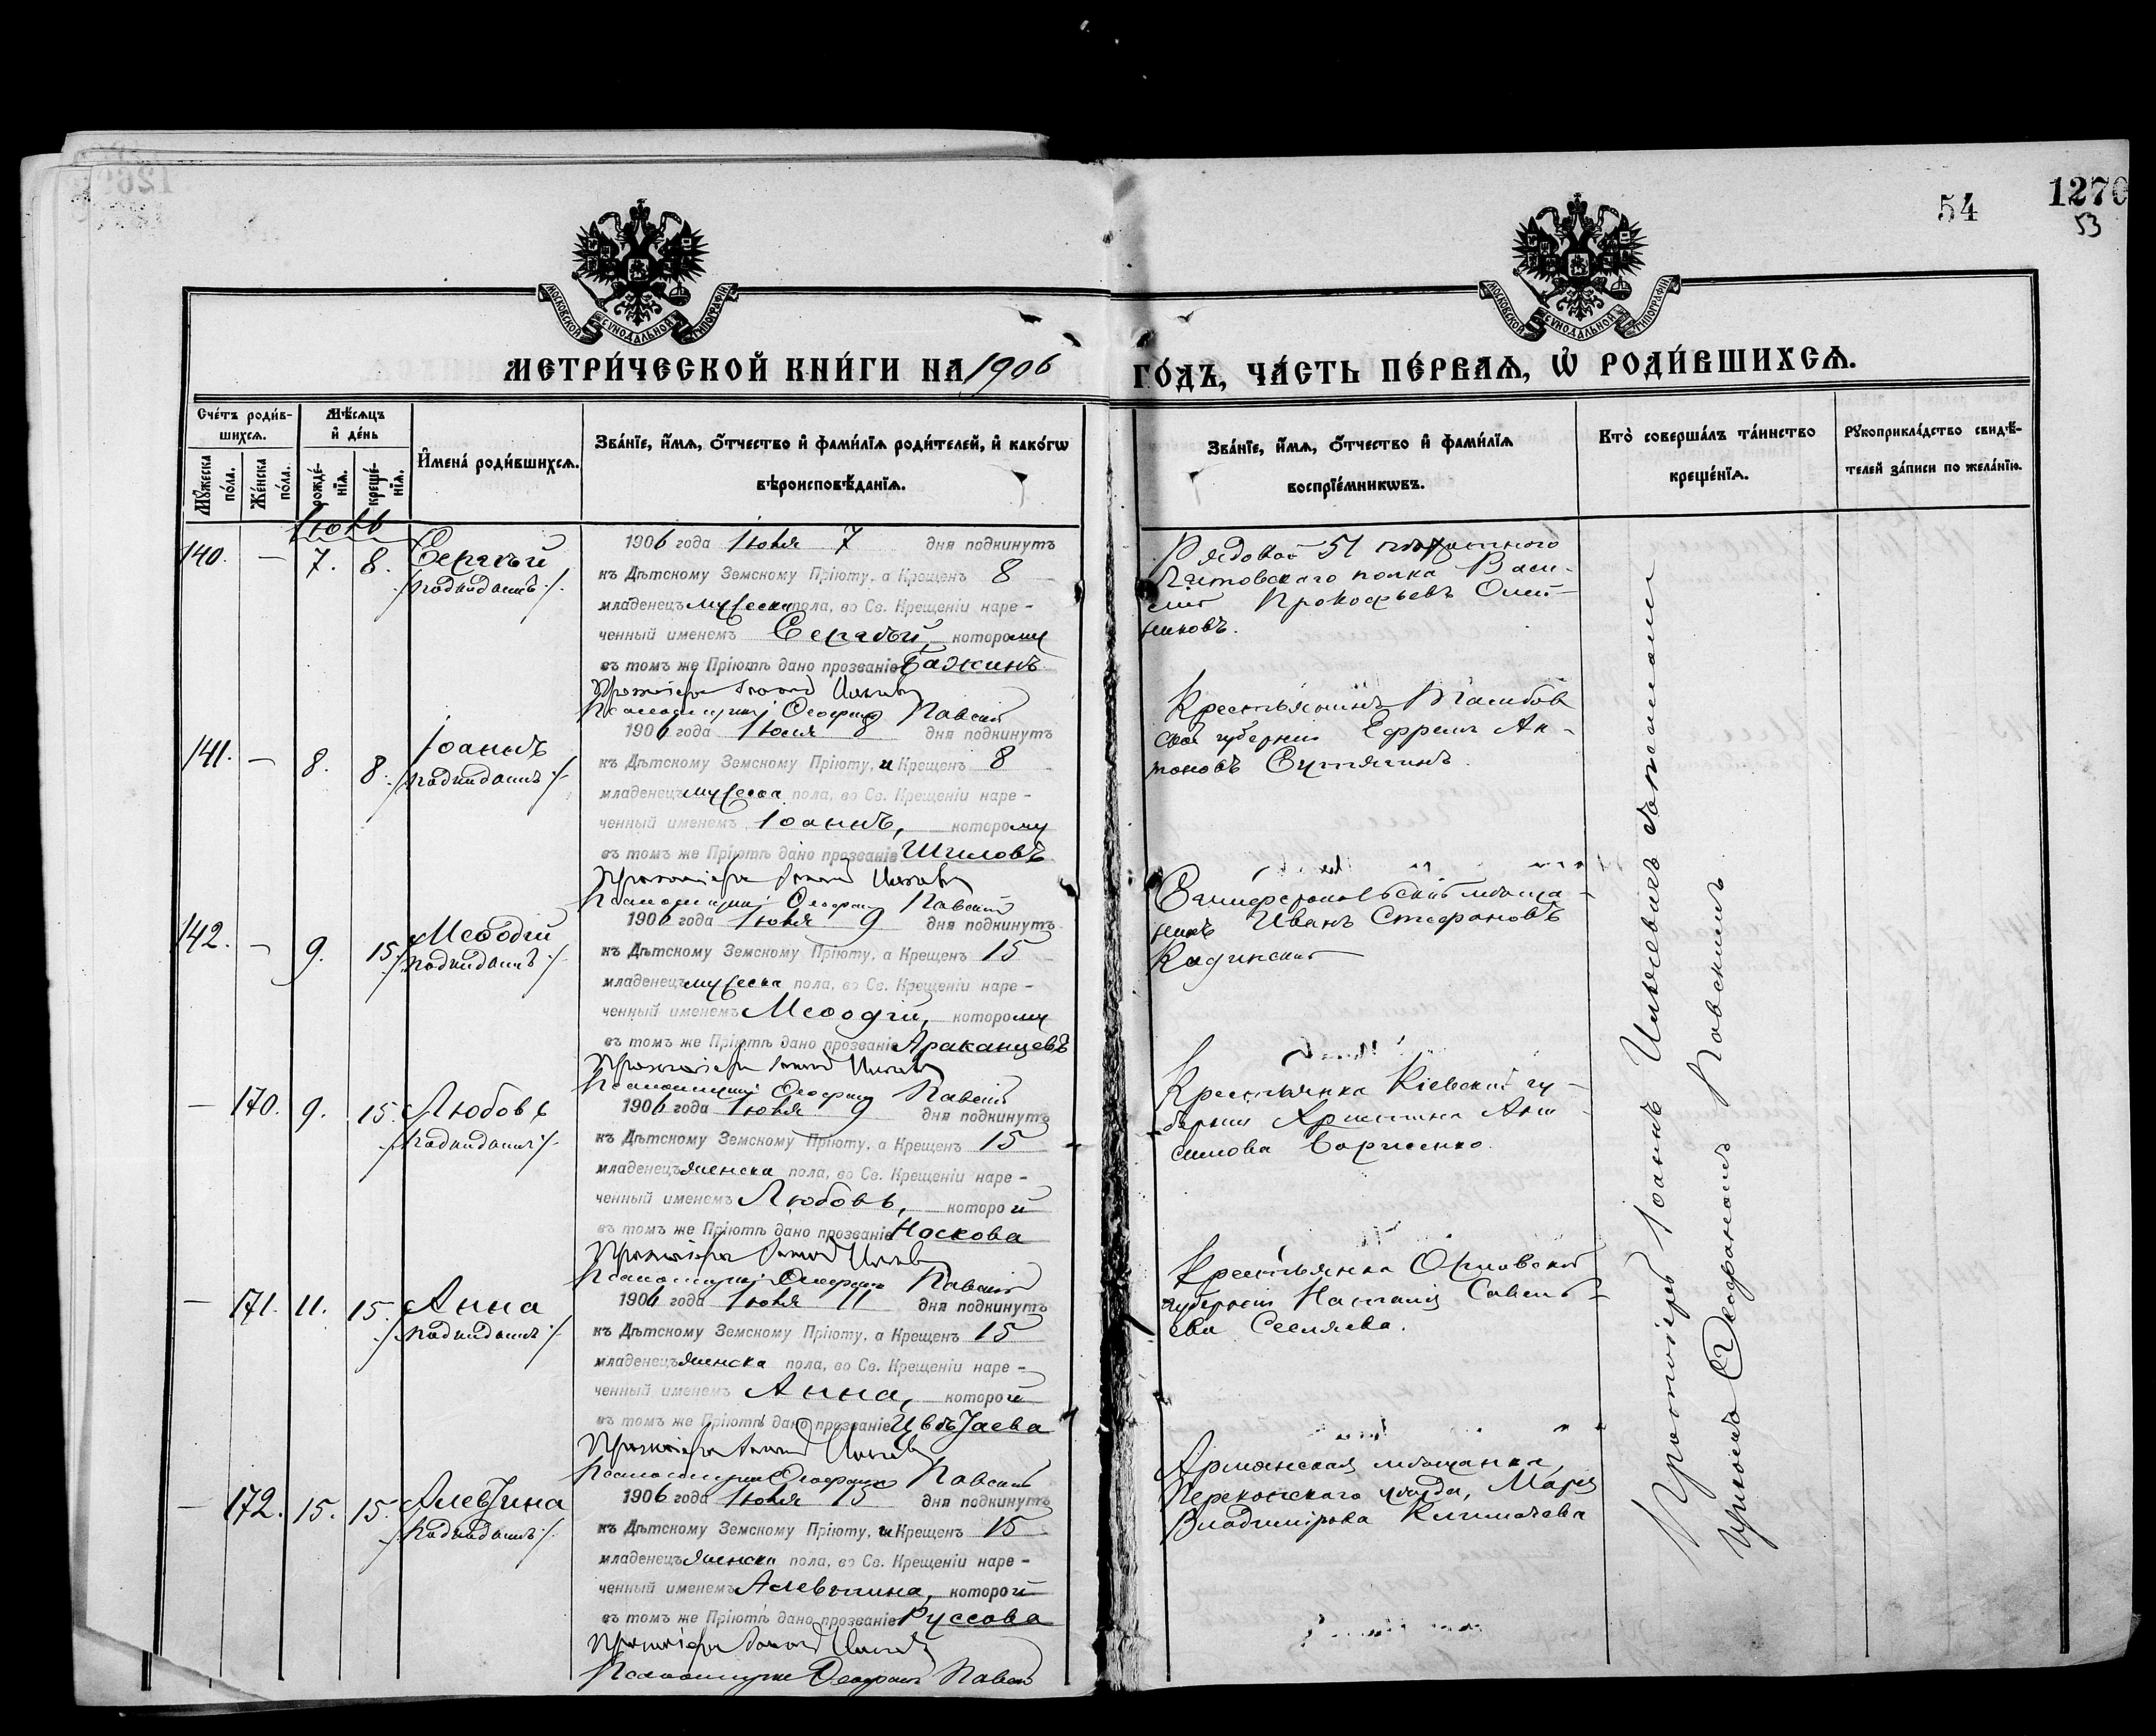 54
1270
53
МОСКОВСКОЙ СѴНОДАЛЬНОЙ ТИПОГРАФІИ
МОСКОВСКОЙ СѴНОДАЛЬНОЙ ТИПОГРАФІИ
МЕТРИ́ЧЕСКОЙ КНИ́ГИ НА 1906
ГО́ДЪ, ЧА́СТЬ ПЕ́РВАѦ, Ѽ РОДИ́ВШИХСѦ.
Сче́тъ роди́в-
шихсѧ.
Мꙋ́жеска по́ла.
Же́нска по́ла.
Мѣ́сѧцъ
и҆ де́нь
рожде́-
нїѧ.
креще́-
нїѧ.
И҆мена̀ роди́вшихсѧ.
Зва́нїе, и҆́мѧ, ѻ҆́тчество и҆ фами́лїѧ роди́телей, и҆ како́гѡ
вѣроисповѣ́данїѧ.
Зва́нїе, и҆́мѧ, ѻ҆́тчество и҆ фами́лїѧ
воспрїе́мникѡвъ.
Кто̀ соверша́лъ та́инство
креще́нїѧ.
Рꙋкоприкла́дство свидѣ́-
телей за́писи по жела́нїю.
Іюль
140. — 7. 8. Сергѣй
/подкидышъ/.
1906 года Іюля 7 дня подкинутъ
къ Дѣтскому Земскому Пріюту, а Крещенъ 8
младенецъ мужеска пола, во Св. Крещеніи наре-
ченный именемъ Сергѣй, которому
въ томъ же Пріютѣ дано прозваніе Бажинъ
Протоіерей Іоаннъ
Псаломщикъ Ѳеофанъ Павскій
Рядовой 51 пѣхотнаго
Литовскаго полка Васи-
лій Прокофьевъ Олей-
никовъ.
141. — 8. 8. Іоаннъ
/подкидышъ/.
1906 года Іюля 8 дня подкинутъ
къ Дѣтскому Земскому Пріюту, и Крещенъ 8
младенецъ мужеска пола, во Св. Крещеніи наре-
ченный именемъ Іоаннъ, которому
въ томъ же Пріютѣ дано прозваніе Шиловъ
Протоіерей Іоаннъ
Псаломщикъ Ѳеофанъ Павскій
Крестьянинъ Тамбов
ской губерніи Ефремъ Ан-
тоновъ
142. — 9. 15. Меѳодій
/подкидышъ/.
1906 года Іюля 9 дня подкинутъ
къ Дѣтскому Земскому Пріюту, а Крещенъ 15
младенецъ мужеска пола, во Св. Крещеніи наре-
ченный именемъ Меѳодій, которому
въ томъ же Пріютѣ дано прозваніе Араканцевъ
Протоіерей Іоаннъ
Псаломщикъ Ѳеофанъ Павскій
Симферопольскій мѣща-
нинъ Иванъ Стефановъ
Кадинскій
— 170. 9. 15. Любовь
/подкидышъ/.
1906 года Іюля 9 дня подкинутъ
къ Дѣтскому Земскому Пріюту, а Крещенъ 15
младенецъ женска пола, во Св. Крещеніи наре-
ченный именемъ Любовь, которой
въ томъ же Пріютѣ дано прозваніе Носкова
Протоіерей Іоаннъ
Псаломщикъ Ѳеофанъ Павскій
Крестьянка Кіевской гу-
берніи Христина Ани-
симова Борисенко.
— 171. 11. 15. Анна
/подкидышъ/.
1906 года Іюля 11 дня подкинутъ
къ Дѣтскому Земскому Пріюту, а Крещенъ 15
младенецъ женска пола, во Св. Крещеніи наре-
ченный именемъ Анна, которой
въ томъ же Пріютѣ дано прозваніе Цвѣтаева
Протоіерей Іоаннъ
Псаломщикъ Ѳеофанъ Павскій
Крестьянка Орловской
губерніи Наталія Савель-
ева
— 172. 15. 15. Алевтина
/подкидышъ/.
1906 года Іюля 15 дня подкинутъ
къ Дѣтскому Земскому Пріюту, и Крещенъ 15
младенецъ женска пола, во Св. Крещеніи наре-
ченный именемъ Алевтина, которой
въ томъ же Пріютѣ дано прозваніе Руссова
Протоіерей Іоаннъ
Псаломщикъ Ѳеофанъ Павскій
Армянская мѣщанка,
Перекопскаго уѣзда, Марія
Владимірова
Протоіерей Іоаннъ съ псаломщи
Ѳеофаномъ Павскимъ